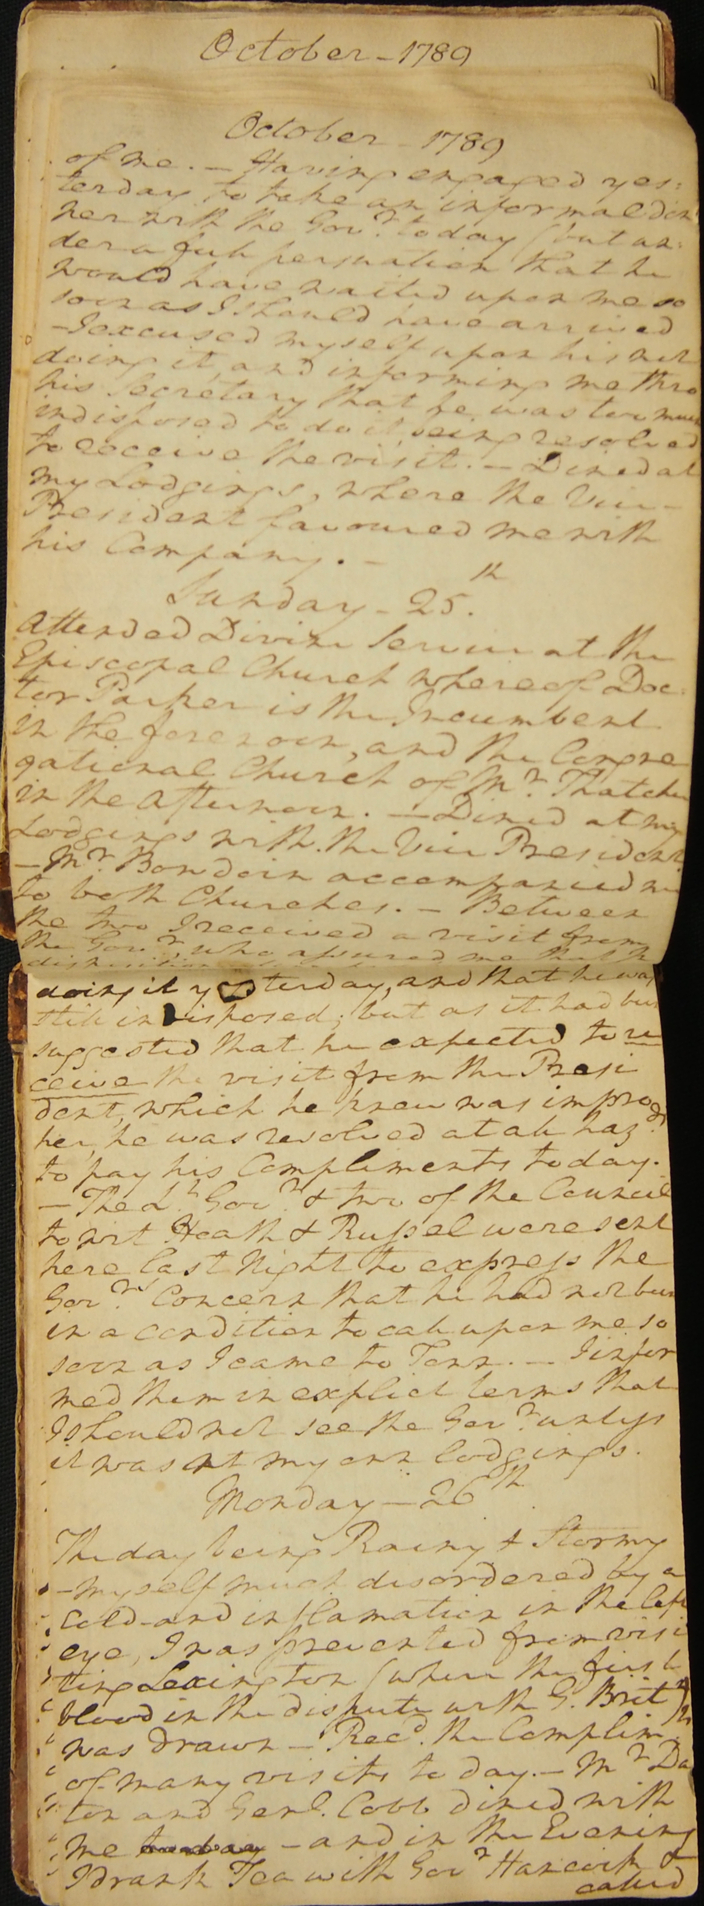 October - 1789
October - 1789
of me. — Having engaged yes:
terday to take an informal din
ner with the Gov.r today (but un:
der a full persuation that he
would have waited upon me so
soon as I should have arrived
— I excused myself upon his not
doing it, and informing me thro
his Secretary that he was too much
indisposed to do it, being resolved
to receive the visit. — Dined at
my Lodgings, where the Vice-
President favoured me with
his Company. —
Sunday - 25.th
Attended Divine Service at the
Episcopal Church whereof Doc:
tor Parker is the Incumbent
in the forenoon, and the Congre
gational Church of Mr. Thatcher
in the Afternoon. — Dined at my
Lodgings with the Vice President
— Mr. Bowdoin accompanied me
to both Churches. — Between
the two I received a visit from
the Gov.r, who assured me that
doing it yesterday, and that he was
still indisposed; but as it had been
suggested that he expected to re
ceive the visit from the Presi
dent, which he knew was improp
her, he was resolved at all haz.ds
to pay his Compliments today.
— The Lt. Gov.r & two of the Council
to wit Heath & Russel were sent
here last Night to express the
Gov.rs Concern that he had not been
in a condition to call upon me so
soon as I came to Town. — I infor
med them in explicit terms that
I should not see the Gov.r unless
it was at my own lodgings.
Monday — 26th
The day being Rainy & Stormy
— myself much disordered by a
cold and inflamation in the left
eye, I was prevented from visi
ting Lexington (where the first
blood in the dispute with G. Brit.n)
was drawn — Recd. the Complim
of many visits to day. — Mr. Da
ton and Genl. Cobb dined with
me to day — and in the Evening
I drank Tea with Gov.r Hancock &
called